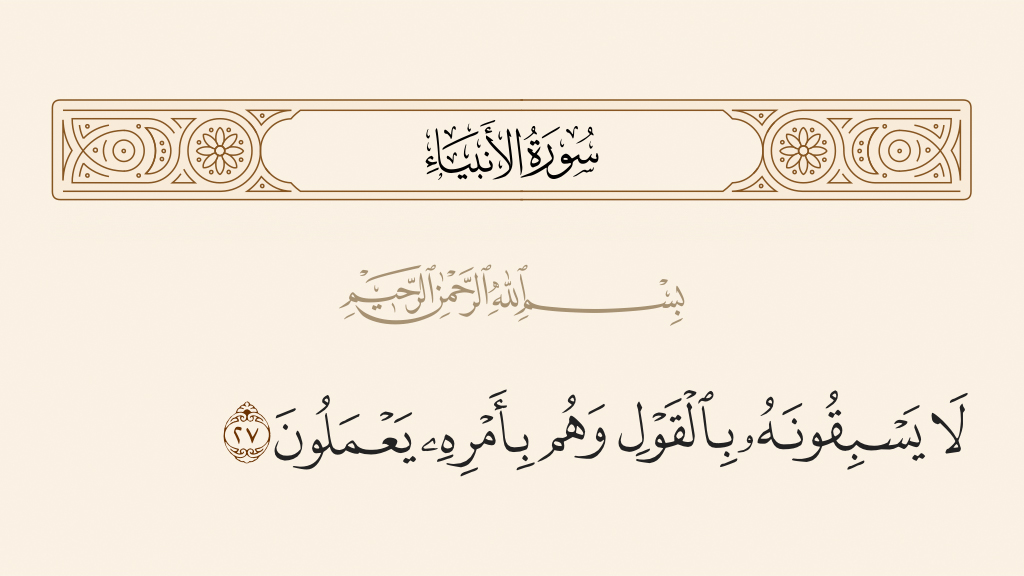 سُورَةُ الأَنبيَاءِ
بِسْمِ ٱللَّهِ ٱلرَّحْمَٰنِ ٱلرَّحِيمِ
لَا يَسْبِقُونَهُۥ بِٱلْقَوْلِ وَهُم بِأَمْرِهِۦ يَعْمَلُونَ ٢٧